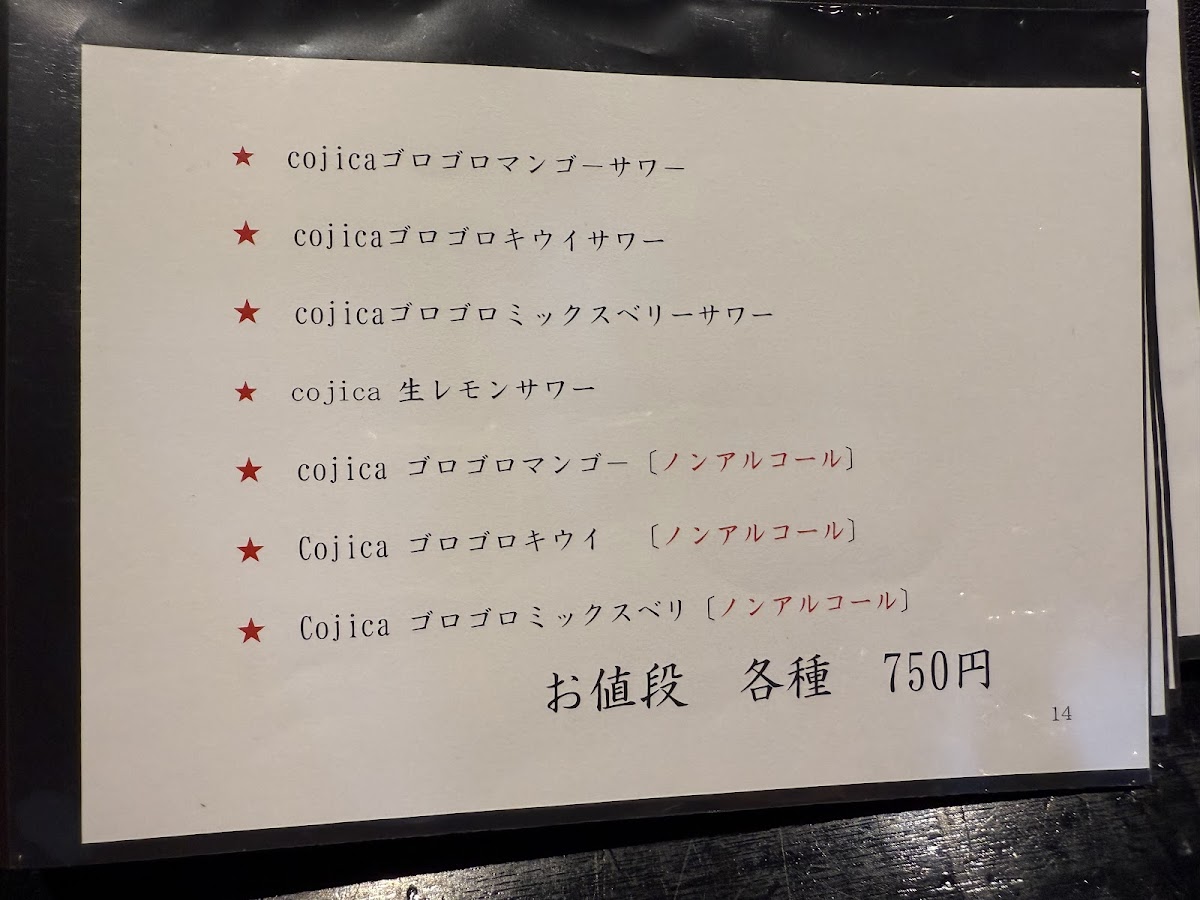 ★ cojicaゴロゴロマンゴーサワー
★ cojicaゴロゴロキウイサワー
★ cojicaゴロゴロミックスベリーサワー
★ cojica 生レモンサワー
★ cojica ゴロゴロマンゴー〔ノンアルコール〕
★ Cojica ゴロゴロキウイ 〔ノンアルコール〕
★ Cojica ゴロゴロミックスベリ〔ノンアルコール〕
お値段 各種 750円
14